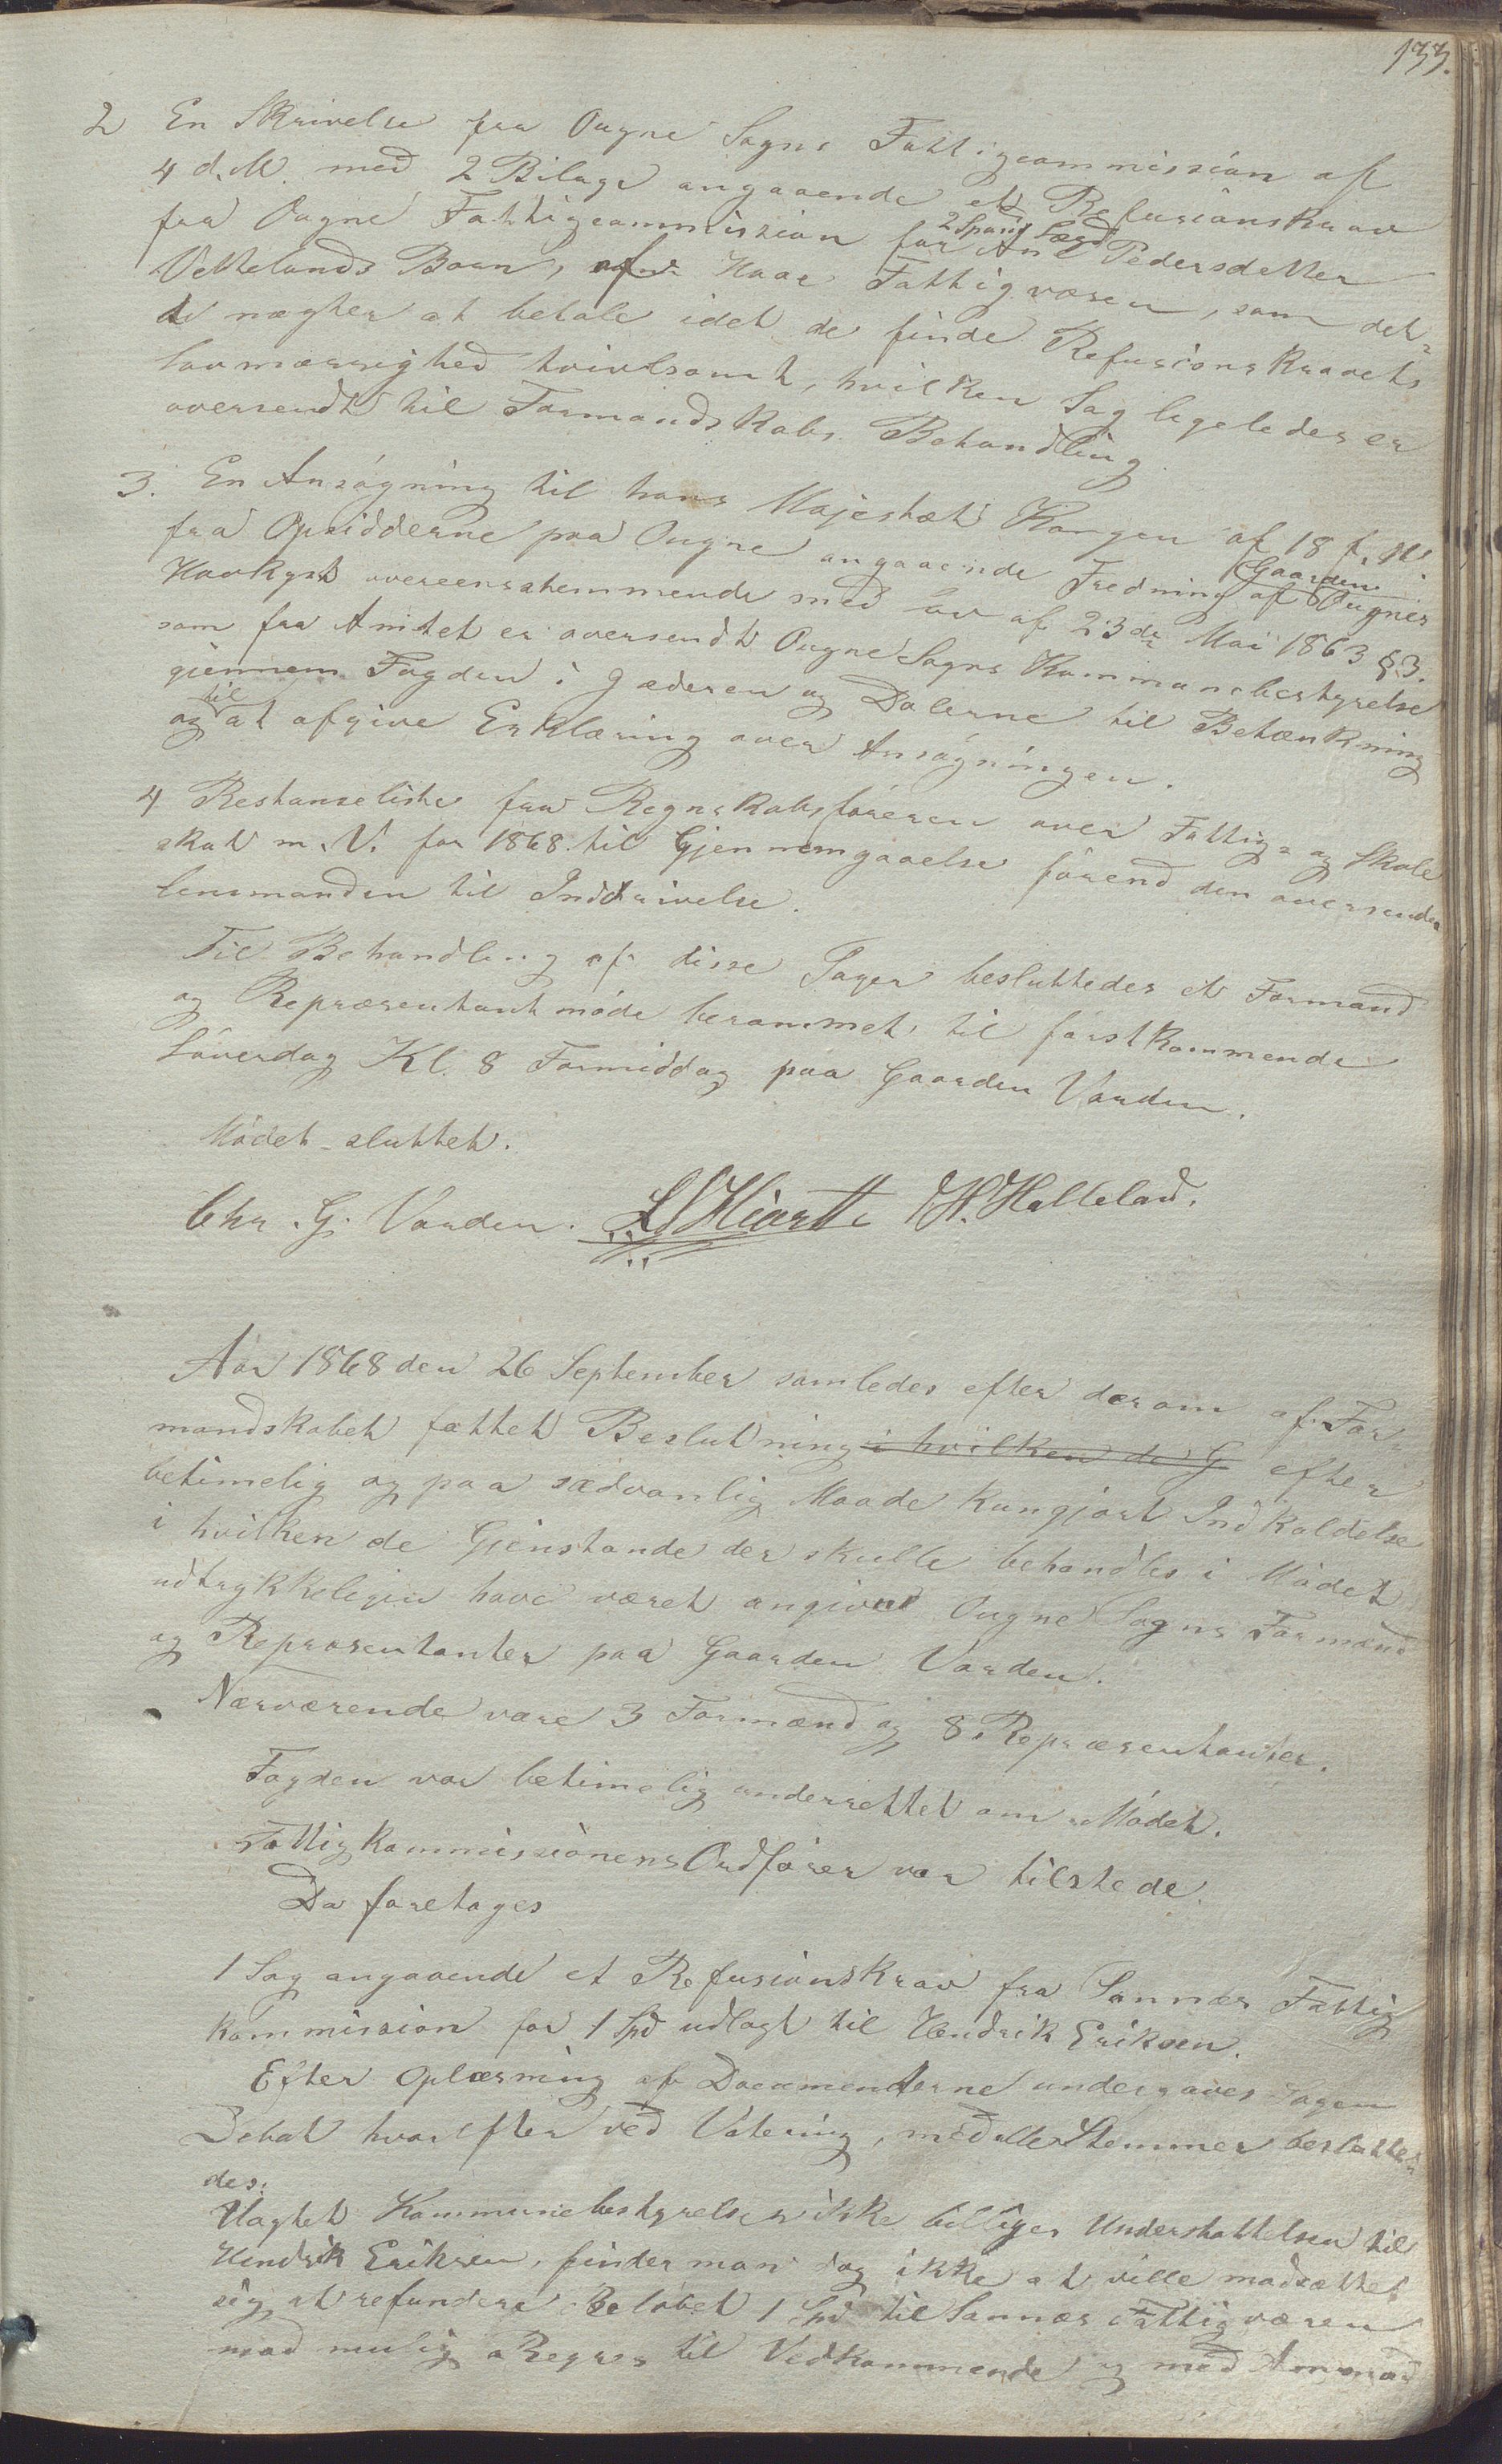 133.
2 En Skrivelse fra Ougne Sogns Fattigcommission af
4 d. M. med 2 Bilage angaaende et Refusionskrav
fra Ougne Fattigcommission for 2 Spand Lægd Ane Pedersdatter
Vettelands Barn, af Haae Fattigvæsen, som det=
te nægter at betale idet de finde Refusionskravets
lovmæssighed tvivlsomt, hvilken Sag ligeledes er
oversendt til Formandskabs Behandling
3. En Ansøgning til hans Majestæt Kongen af 18 f. M.
fra Opsidderne paa Ougne angaaende Fredning af Gaarden Ougnes
Havkyst overeensstemmende med lov af 23de Mai 1863 §.3.
som fra Amtet er oversendt Ougne Sogns Kommunebestyrelse
gjennem Fogden i Jæderen og Dalerne til Betænkning
og til at afgive Erklæring over Ansøgningen.
4 Restanseliste fra Regnskabsføreren over Fattig= og Skole
skat m. V. for 1868 til Gjennemgaaelse førend den oversendes
lensmanden til Inddrivelse.
Til Behandling af disse Sager besluttedes et Formand
og Repræsentantmøde berammet til førstkommende
Løverdag Kl. 8 Formiddag paa Gaarden Varden.
Mødet sluttet.
Chr. G. Varden. L. Hiortt H. Halleland.
Aar 1868 den 26 September samledes efter derom af For=
mandskabet fattet Beslutning i hvilken de G efter
betimelig og paa sædvanlig Maade kungjort Indkaldelse
i hvilken de Gjenstande der skulle behandles i Mødet
udtrykkeligen have været angivet Ougne Sogns Formænd
og Repræsentanter paa Gaarden Varden.
Nærværende vare 3 Formænd og 8 Repræsentanter.
Fogden var betimelig underrettet om Mødet.
Fattigkommissionens Ordfører var tilstede.
Da foretoges
1 Sag angaaende et Refusionskrav fra Sannes Fattig
kommission for 1 Spd udlagt til Hendrik Eriksen.
Efter Oplæsning af Documenterne undergaves Sagen
Debat hvorefter ved Votering, med alle Stemmer beslutte=
des:
Uagtet Kommunebestyrelsen ikke billiger Understøttelsen til
Hendrik Eriksen, finder man dog ikke at ville modsætte
sig at refundere Beløbet 1 Spd til Sannes Fattigvæsen
mod mulig Regres til Vedkommende og med Anmod